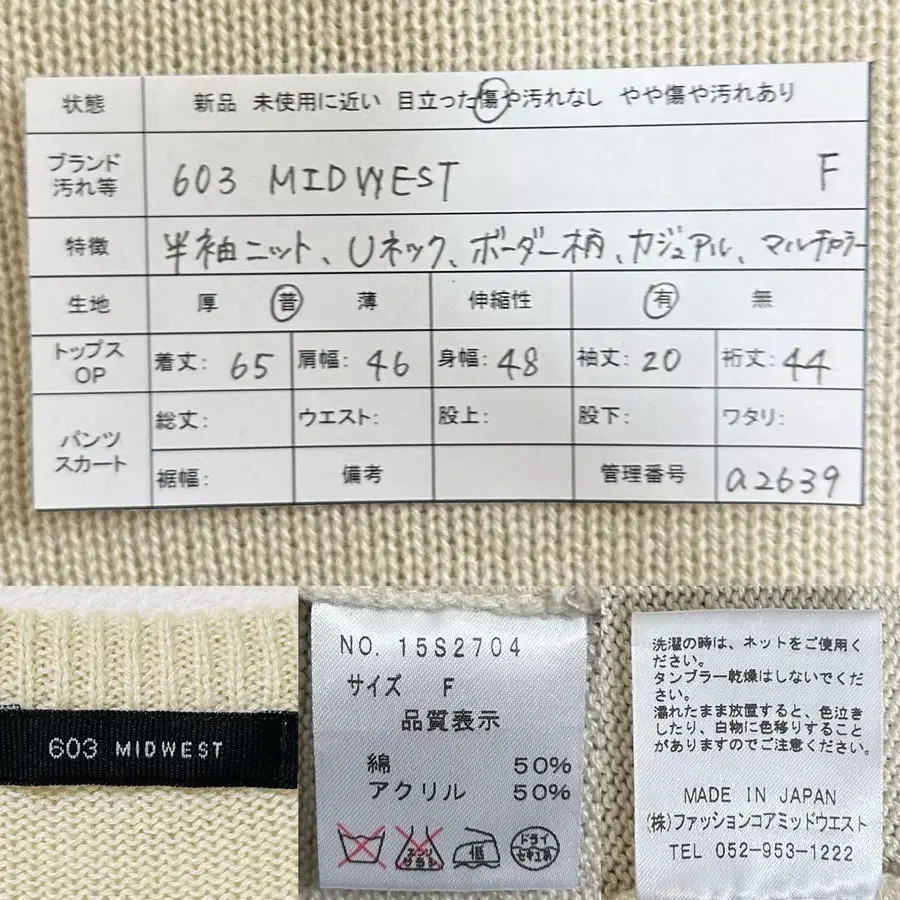 状態 新品 未使用に近い 目立った傷や汚れなし やや傷や汚れあり
ブランド
汚れ等 603 MIDWEST F
特徴 半袖ニット、Uネック、ボーダー柄、カジュアル、マルチカラー
生地 厚 普 薄 伸縮性 有 無
トップス
OP 着丈: 65 肩幅: 46 身幅: 48 袖丈: 20 裄丈: 44
パンツ
スカート 総丈: ウエスト: 股上: 股下: ワタリ:
裾幅: 備考 管理番号 a2639
603 MIDWEST
NO. 15S2704
サイズ F
品質表示
綿 50%
アクリル 50%
エンソサラシ 低 ドライ
セキユ系
洗濯の時は、ネットをご使用く
ださい。
タンブラー乾燥はしないでくだ
さい。
濡れたまま放置すると、色泣き
したり、白物に色移りすること
がありますのでご注意ください。
MADE IN JAPAN
(株)ファッションコアミッドウエスト
TEL 052-953-1222